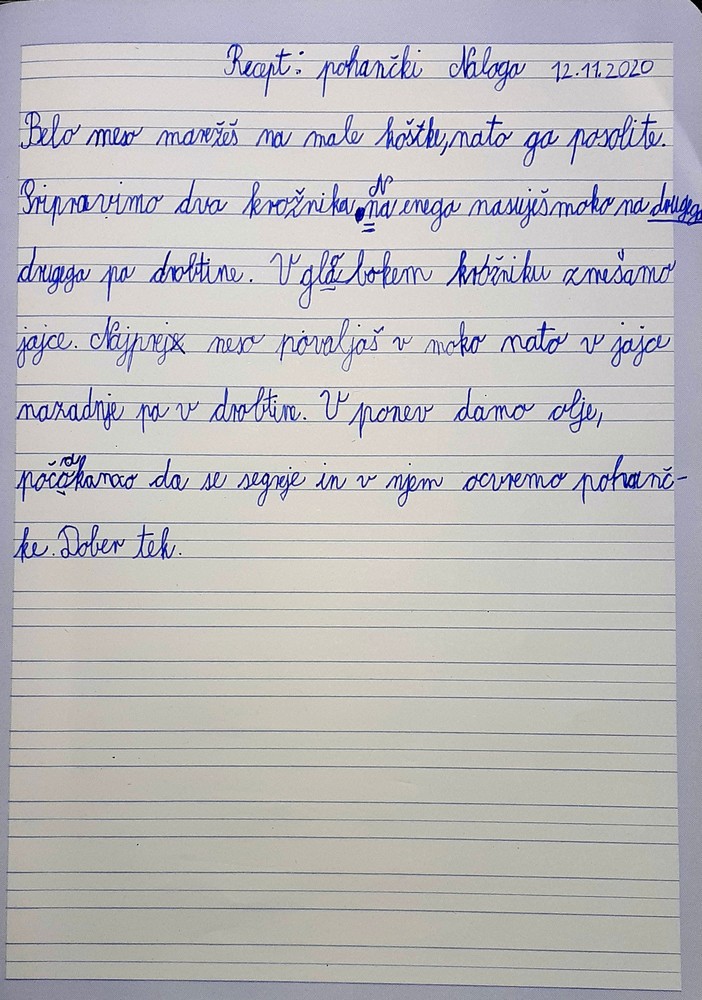 Recept: pohančki Naloga 12.11.2020
Belo meso narežeš na male koščke, nato ga posolite.
Pripravimo dva krožnika. Na enega nasuješ moko na drugega
drugega pa drobtine. V globokem krožniku zmešamo
jajce. Najprej meso povaljaš v moko nato v jajce
nazadnje pa v drobtine. V ponev damo olje,
počakamo da se segreje in v njem ocvremo pohanč-
ke. Dober tek.